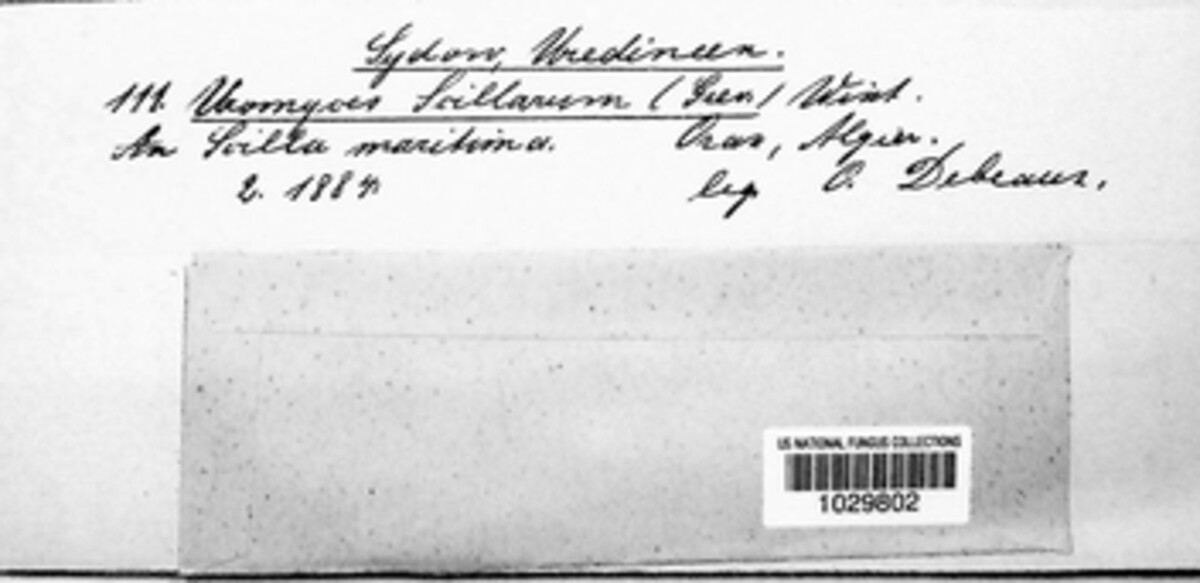 Sydow, Uredineen.
111. Uromyces Scillarum (Grev.) Wint.
An Scilla maritima. Oran, Algier.
2. 1884. leg. O. Debeaux.
US NATIONAL FUNGUS COLLECTIONS
1029802